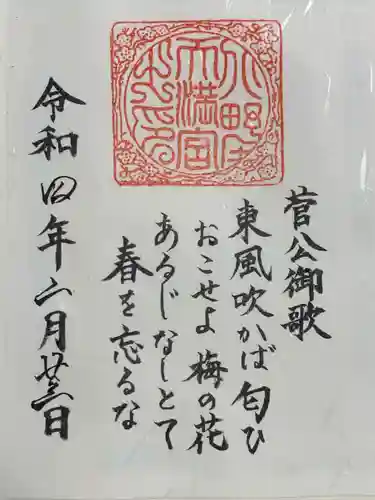 天満宮
之印
菅公御歌
東風吹かば匂ひ
おこせよ梅の花
あるじなしとて
春を忘るな
令和四年二月廿三日